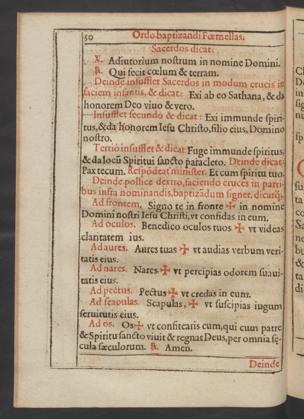 50 Ordo baptizandi Fœmellas.
Sacerdos dicat:
℣. Adiutorium nostrum in nomine Domini.
℟. Qui fecit cœlum & terram.
Deinde insufflet Sacerdos in modum crucis in
faciem infantis, & dicat: Exi ab eo Sathana, & da
honorem Deo viuo & vero.
Insufflet secundo & dicat: Exi immunde spiri-
tus, & da honorem Iesu Christo, filio eius, Domino
nostro.
Tertio insufflet & dicat Fuge immunde spiritus,
& da locū Spiritui sancto paracleto. Deinde dicat:
Pax tecum. Respōdeat minister. Et cum spiritu tuo.
Deinde pollice dextro, faciendo cruces in parti-
bus infra nominandis, baptizādum signet, dicens:
Ad frontem. Signo te in fronte ✠ in nomine
Domini nostri Iesu Christi, vt confidas in eum.
Ad oculos. Benedico oculos tuos ✠ vt videas
claritatem eius.
Ad aures. Aures tuas ✠ vt audias verbum veri-
tatis eius.
Ad nares. Nares ✠ vt percipias odorem suaui-
tatis eius.
Ad pectus. Pectus ✠ vt credas in eum.
Ad scapulas. Scapulas, ✠ vt suscipias iugum
seruitutis eius.
Ad os. Os ✠ vt confitearis eum, qui cum patre
& Spiritu sancto viuit & regnat Deus, per omnia se-
cula sæculorum. ℟. Amen.
Deinde